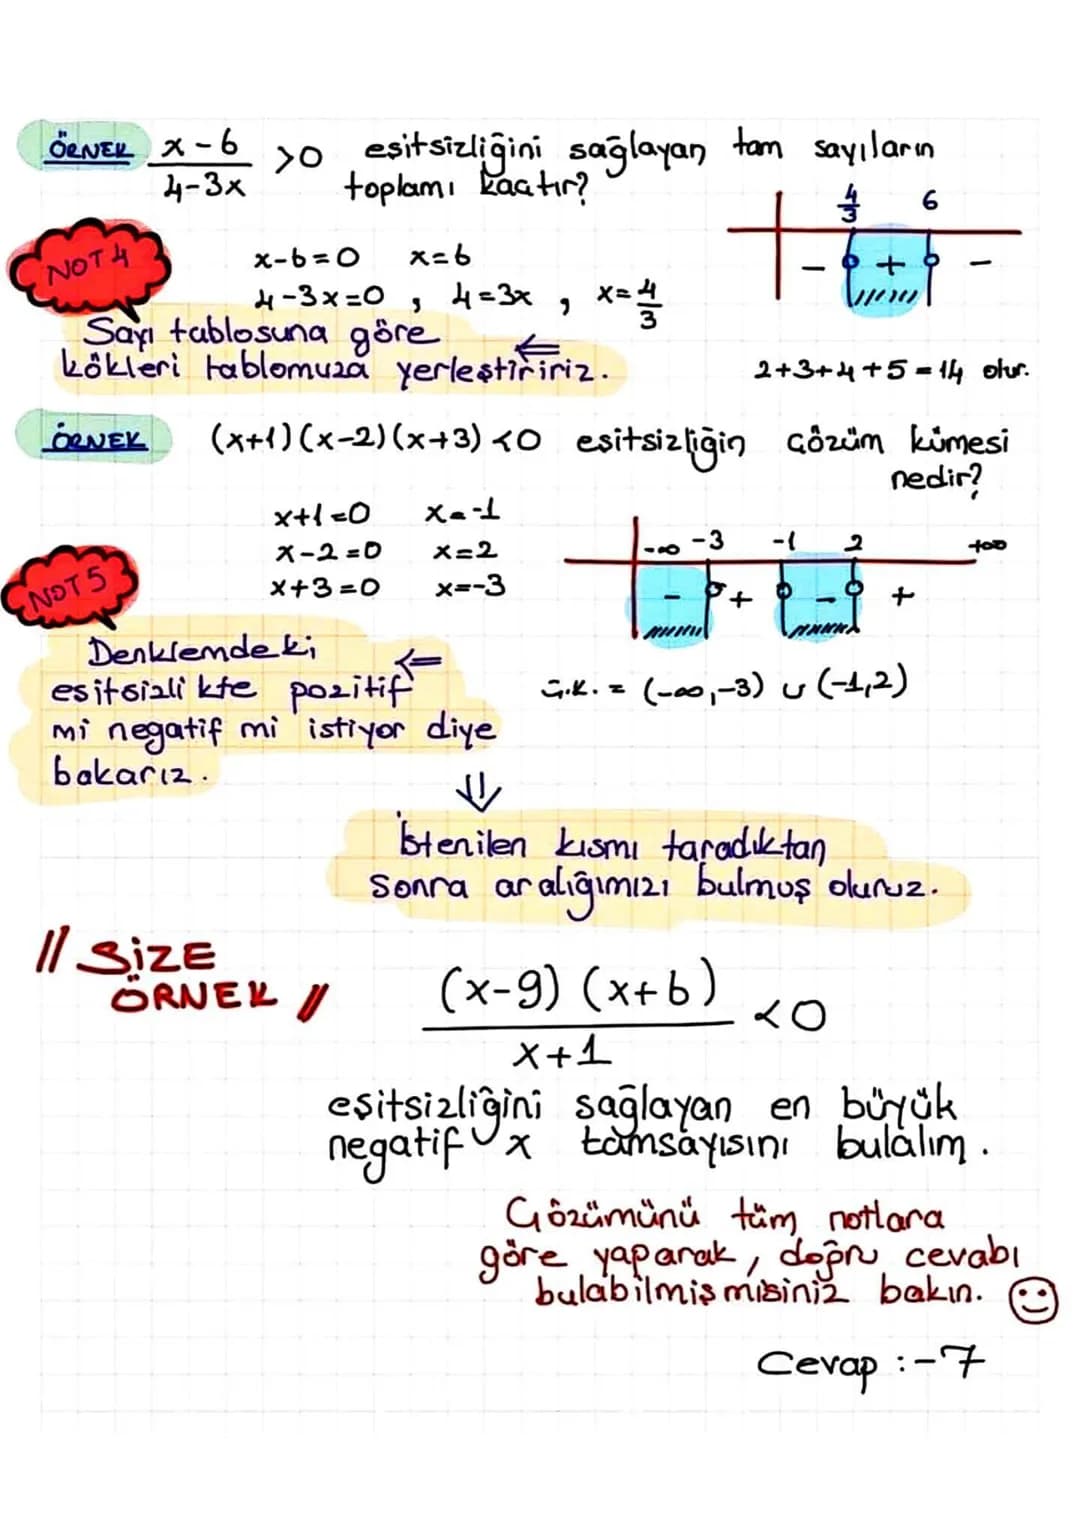 ÖRNEK x-6 / 4-3x >0 eşitsizliğini sağlayan tam sayıların
toplamı kaçtır?
4/3 6
- + -
NOT 4
x-6=0 x=6
4-3x=0 , 4=3x , x=4/3
Sayı tablosuna göre
kökleri tablomuza yerleştiririz. ⇐
2+3+4+5=14 olur.
ÖRNEK (x+1)(x-2)(x+3) <0 eşitsizliğin çözüm kümesi
nedir?
x+1=0 x=-1
x-2=0 x=2
x+3=0 x=-3
-∞ -3 -1 2 +∞
- + - +
NOT 5
Denklemdeki
eşitsizlikte pozitif ⇐
mi negatif mi istiyor diye
bakarız.
Ç.K. = (-∞,-3) ∪ (-1,2)
⇓
İstenilen kısmı taradıktan
sonra aralığımızı bulmuş oluruz.
// SİZE
ÖRNEK //
(x-9) (x+6) / x+1 <0
eşitsizliğini sağlayan en büyük
negatif x tamsayısını bulalım.
Çözümünü tüm notlara
göre yaparak, doğru cevabı
bulabilmiş misiniz bakın.
Cevap :-7